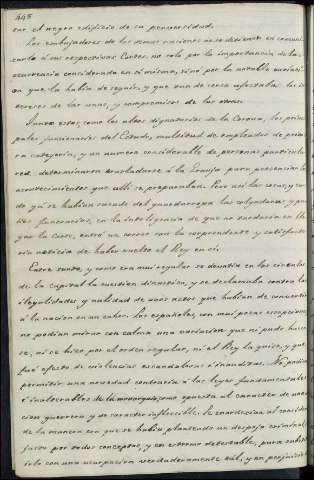 448
con el negro edificio de su perversidad.
Los embajadores de las demas naciones no se detienen en comuni-
carlo á sus respectivas Cortes, no solo por la importancia de la o-
currencia considerada en sí misma, sinó por la notable variacion
que la habia de seguir, y que tan de cerca afectaba los in-
tereses de las unas, y compromisos de las otras.
Juntos estos, como las altas dignatarias de la Corona, los princi-
pales funcionarios del Estado, multitud de empleados de prime-
ra categoria, y un numero considerable de personas particula-
res, determinaron trasladarse á la Granja para presenciar los
acontecimientos que alli se preparaban. Pero asi las cosas, y cuan-
do yá se habian sacado del guardarropa las colgaduras y pa-
ños funerarios, en la inteligencia de que no tardaria en lle-
gar la Corte, entró un correo con la sorprendente y satisfacto-
ria noticia de haber vuelto el Rey en sí.
Entre tanto, y como era muy regular se devatia en los circulos
de la capital la cuestion dinastica, y se declamaba contra las
ilegalidades y nulidad de unos actos que habian de convertir
á la nacion en un caos. Los españoles, con muy pocas escepciones
no podian mirar con calma una variacion que ni pudo hacer-
se, ni se hizo por el orden regular, ni el Rey la quiso, y que
fué efecto de violencias escandalosas é inauditas. No podian
permitir una novedad contraria á las leyes fundamentales
é inalterables de la monarquia, como opuesta al caracter de una na-
cion guerrera y de caracter inflexible. Se enardecian al considerar
de la manera con que se habia planteado un despojo criminal é in-
justo por todos conceptos, y en estremo detestable, para substi-
tuirlo con una usurpacion verdaderamente vil, y en perjuicio